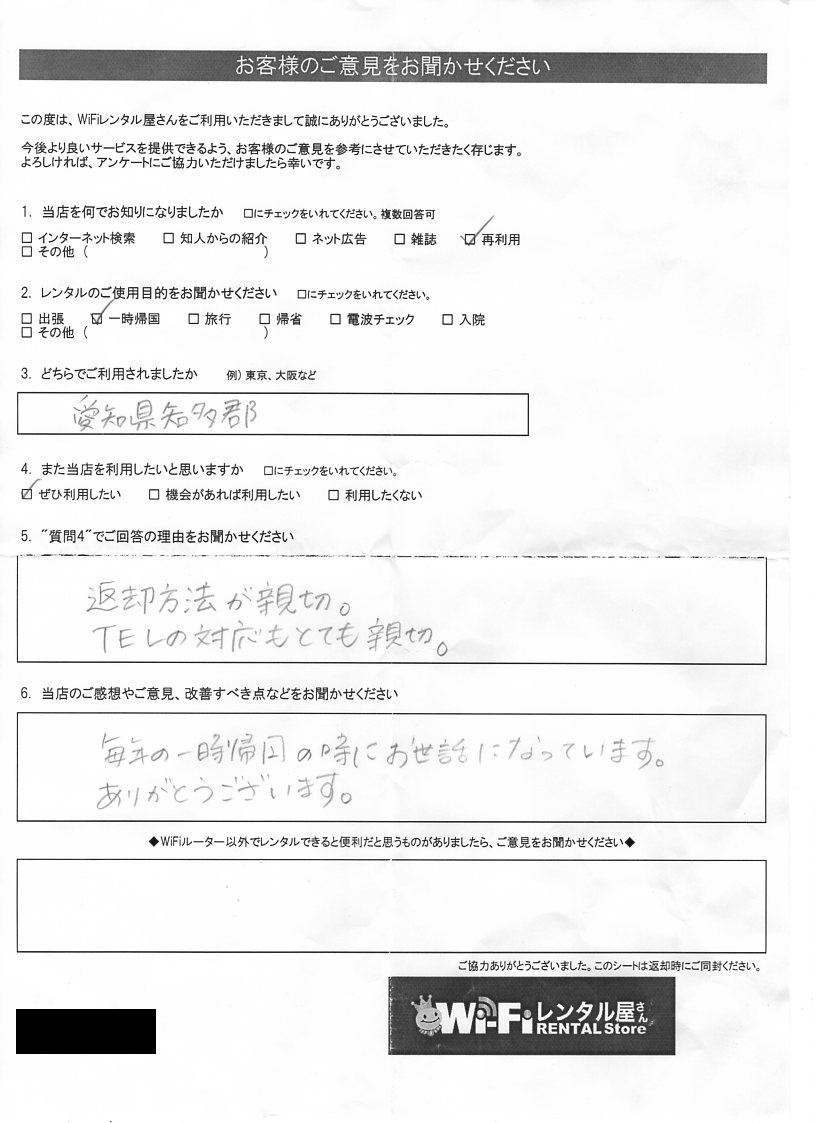 お客様のご意見をお聞かせください
この度は、WiFiレンタル屋さんをご利用いただきまして誠にありがとうございました。
今後より良いサービスを提供できるよう、お客様のご意見を参考にさせていただきたく存じます。
よろしければ、アンケートにご協力いただけましたら幸いです。
1. 当店を何でお知りになりましたか □にチェックをいれてください。複数回答可
□ インターネット検索 □ 知人からの紹介 □ ネット広告 □ 雑誌 ☑ 再利用
□ その他 ( )
2. レンタルのご使用目的をお聞かせください □にチェックをいれてください。
□ 出張 ☑ 一時帰国 □ 旅行 □ 帰省 □ 電波チェック □ 入院
□ その他 ( )
3. どちらでご利用されましたか 例) 東京、大阪など
愛知県知多郡
4. また当店を利用したいと思いますか □にチェックをいれてください。
☑ ぜひ利用したい □ 機会があれば利用したい □ 利用したくない
5. "質問4"でご回答の理由をお聞かせください
返却方法が親切。
TELの対応もとても親切。
6. 当店のご感想やご意見、改善すべき点などをお聞かせください
毎年の一時帰国の時にお世話になっています。
ありがとうございます。
◆WiFiルーター以外でレンタルできると便利だと思うものがありましたら、ご意見をお聞かせください◆
ご協力ありがとうございました。このシートは返却時にご同封ください。
Wi-Fiレンタル屋さん
RENTAL Store